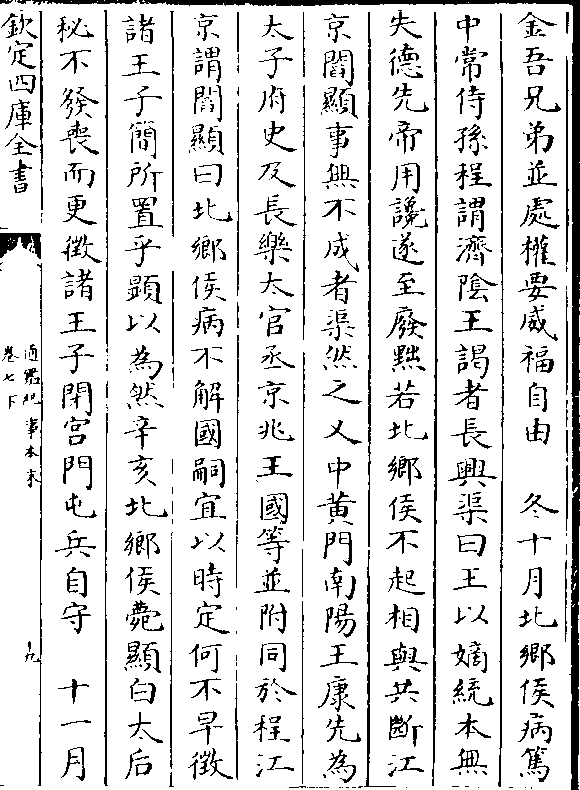 金吾兄弟並處權要威福自由　冬十月北鄉侯病篤
中常侍孫程謂濟陰王謁者長興渠曰王以嫡統本無
失德先帝用讒遂至廢黜若北鄉侯不起相與共斷江
京閻顯事無不成者渠然之又中黄門南陽王康先為
太子府史及長樂太官丞京兆王國等並附同於程江
京謂閻顯曰北鄉侯病不解國嗣宜以時定何不早徵
諸王子簡所置乎顯以為然辛亥北鄉侯薨顯白太后
秘不發喪而更徵諸王子閉宮門屯兵自守　十一月
欽定四庫全書
通鑑紀事本末
卷七下
九